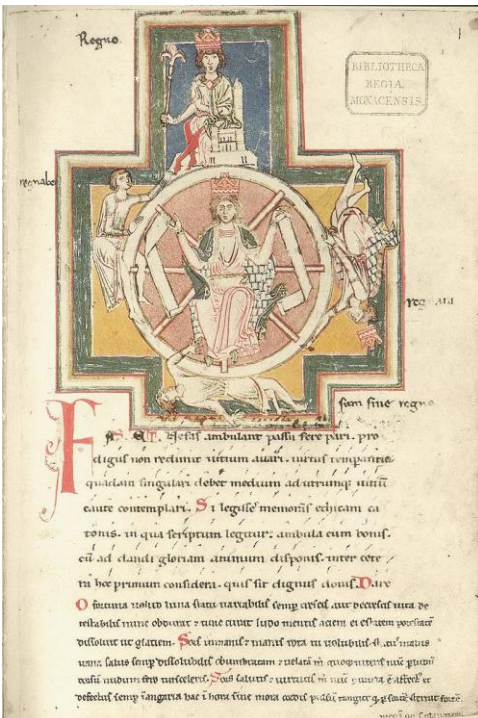 Regno.
BIBLIOTHECA
REGIA
MONACENSIS.
regnabo
sum sine regno
FAS ET Nefas ambulant passu fere pari. pro
digus non redimit vitium avari. virtus temperantia
quadam singulari debet medium ad utrumque vitium
caute contemplari. Si legisse memoras ethicam ca
tonis. in qua scriptum legitur. ambula cum bonis.
cum ad dandi gloriam animum disponis. inter cete
ra hoc primum considera. quis sit dignus donis. Dare
O fortuna velud luna statu variabilis semper crescis aut decrescis vita de
testabilis nunc obdurat & tunc curat ludo mentis aciem egestatem potestatem
dissolvit ut glaciem. Sors inmanis & inanis rota tu volubilis status malus
vana salus semper dissolubilis obumbratam & velatam michi quoque niteris nunc per ludum
dorsum nudum fero tui sceleris. Sors salutis & virtutis michi nunc contraria est affectus &
defectus semper in angaria hac in hora sine mora corde pulsum tangite